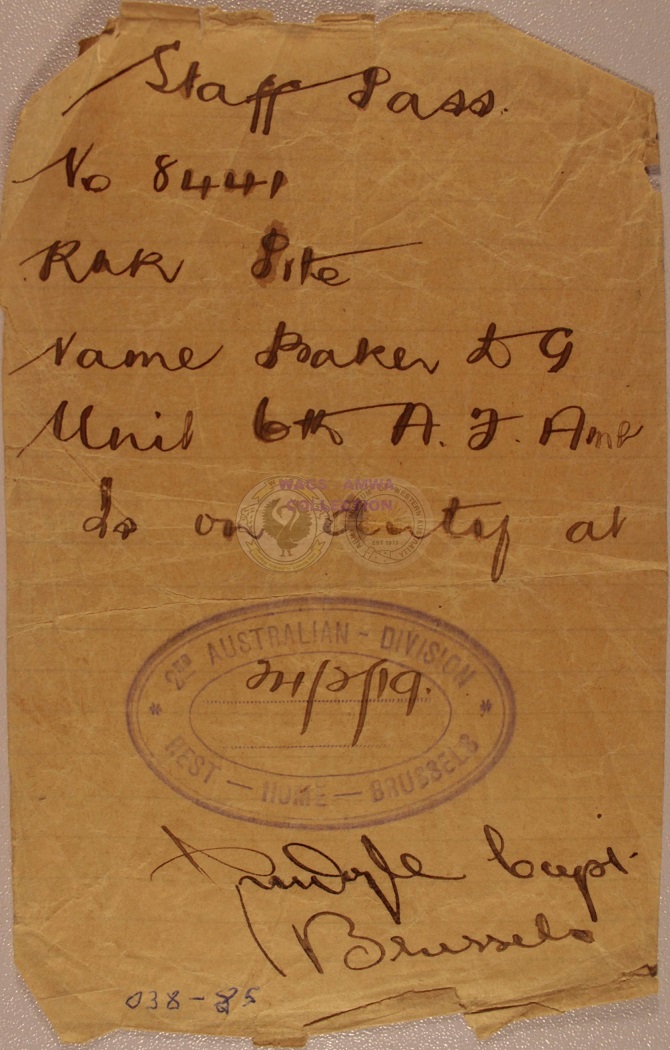 Staff Pass.
No 8441
Rank Pite
Name Baker D G
Unit 6th A. F. Amb
Is on duty at
WAGS AMWA
COLLECTION
2ND AUSTRALIAN - DIVISION
21/2/19.
REST - HOME - BRUSSELS
Capt.
Brussels
038-85